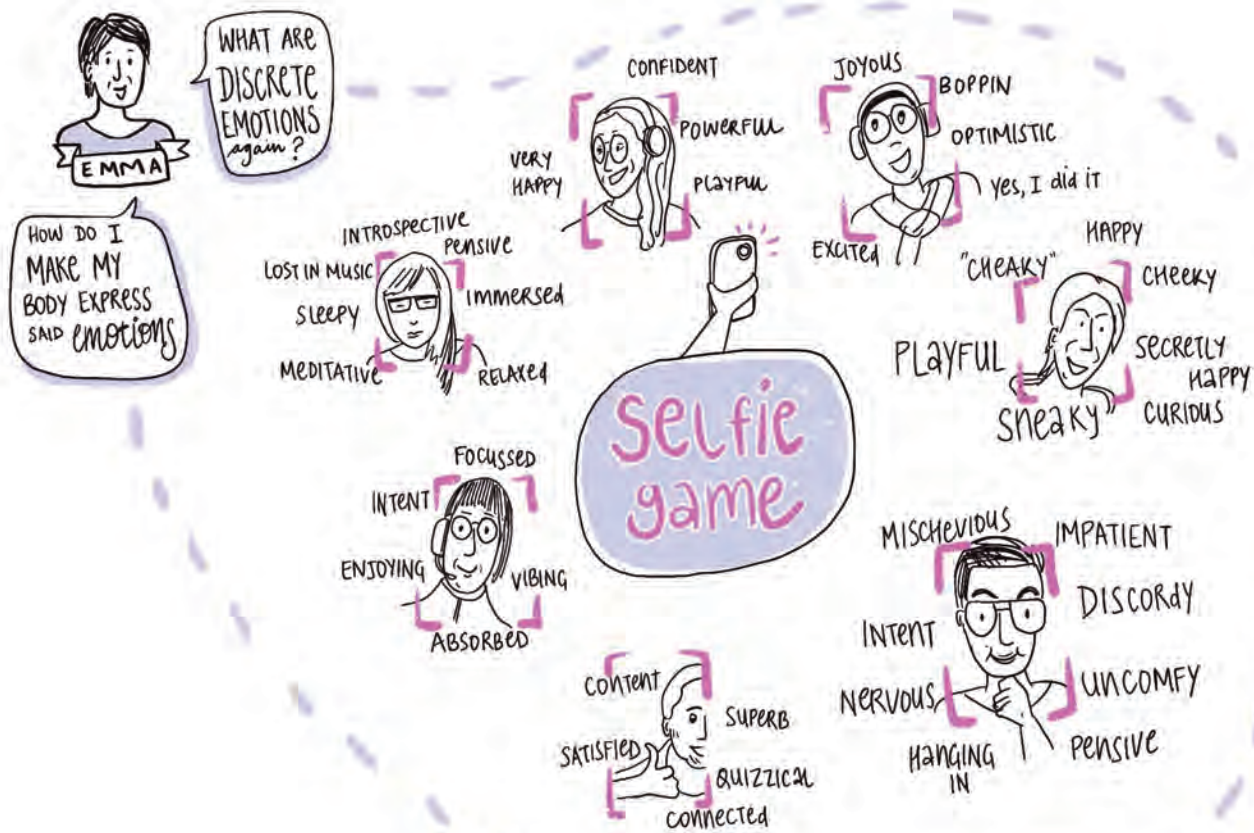 WHAT ARE
DISCRETE
EMOTIONS
again?
EMMA
HOW DO I
MAKE MY
BODY EXPRESS
SAID emotions
CONFIDENT
POWERFUL
VERY
HAPPY
PLAYFUL
JOYOUS
BOPPIN
OPTIMISTIC
Yes, I did it
EXCITED
INTROSPECTIVE
PENSIVE
LOST IN MUSIC
IMMERSED
SLEEPY
MEDITATIVE
RELAXED
HAPPY
"CHEAKY"
CHEEKY
PLAYFUL
SECRETLY
HAPPY
SNEAKY"
CURIOUS
Selfie
game
FOCUSSED
INTENT
ENJOYING
VIBING
ABSORBED
MISCHEVIOUS
IMPATIENT
DISCORDY
INTENT
NERVOUS
UNCOMFY
HANGING
IN
PENSIVE
CONTENT
SUPERB
SATISFIED
QUIZZICAL
CONNECTED